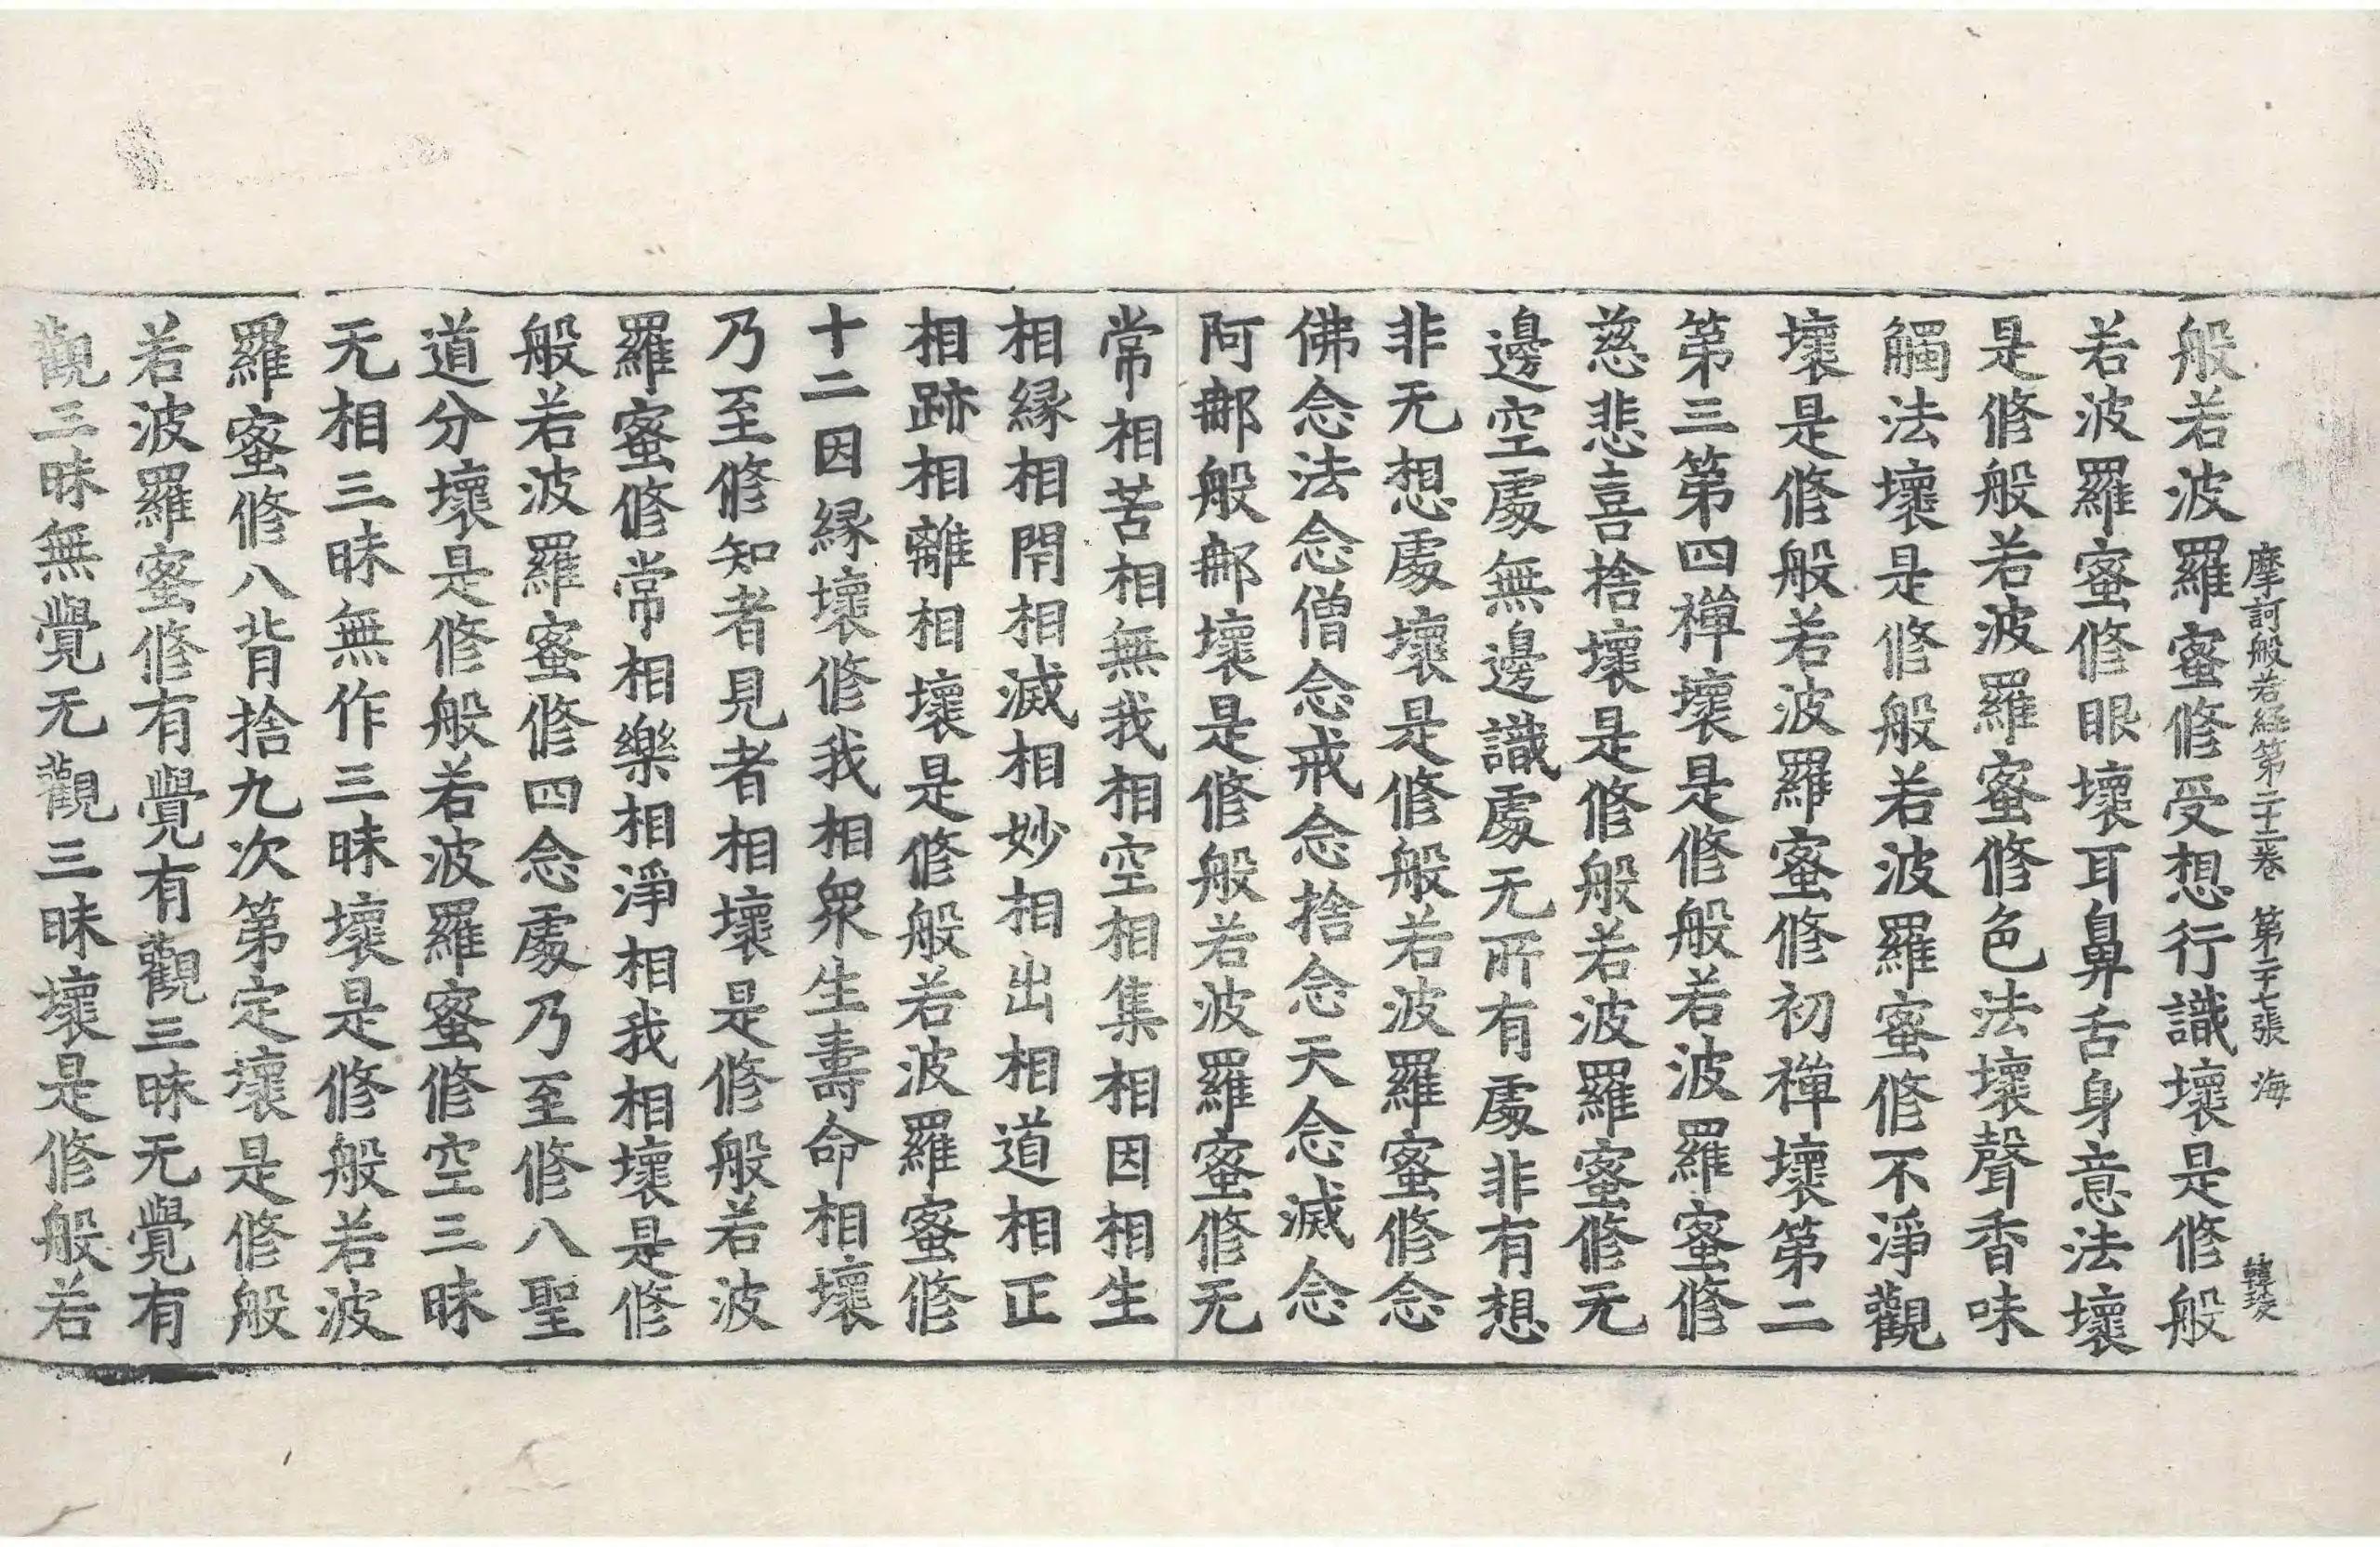 摩訶般若經第二十二卷 第二十七張 海
般若波羅蜜修受想行識壞是修般
若波羅蜜修眼壞耳鼻舌身意法壞
是修般若波羅蜜修色法壞聲香味
觸法壞是修般若波羅蜜修不淨觀
壞是修般若波羅蜜修初禪壞第二
第三第四禪壞是修般若波羅蜜修
慈悲喜捨壞是修般若波羅蜜修无
邊空處無邊識處无所有處非有想
非无想處壞是修般若波羅蜜修念
佛念法念僧念戒念捨念天念滅念
阿那般那壞是修般若波羅蜜修无
常相苦相無我相空相集相因相生
相緣相閇相滅相妙相出相道相正
相跡相離相壞是修般若波羅蜜修
十二因緣壞修我相衆生壽命相壞
乃至修知者見者相壞是修般若波
羅蜜修常相樂相淨相我相壞是修
般若波羅蜜修四念處乃至修八聖
道分壞是修般若波羅蜜修空三昧
无相三昧無作三昧壞是修般若波
羅蜜修八背捨九次第定壞是修般
若波羅蜜修有覺有觀三昧无覺有
觀三昧無覺无觀三昧壞是修般若